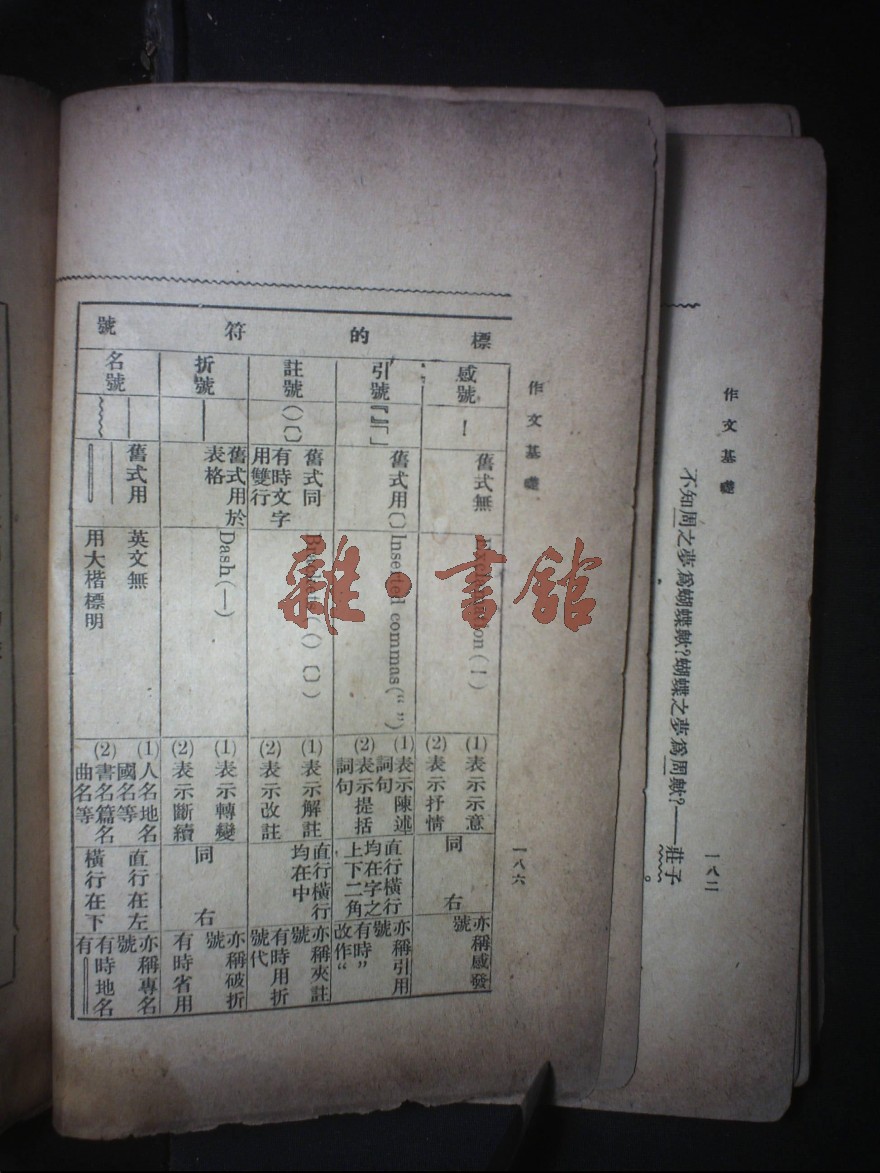 作文基礎
一八六
標的符號
感號
！
舊式無
Exclamation (！)
(1)表示示意
(2)表示抒情
同右
亦稱感發
號
引號
『』「」
舊式用〔〕
Inserted commas (“ ”)
(1)表示陳述
詞句
(2)表示提括
詞句
直行橫行
均在字之
上下二角
亦稱引用
號
有時”
改作“
註號
（）〔〕
舊式同
有時文字
用雙行
Brackets (（）〔〕)
(1)表示解註
(2)表示改註
直行橫行
均在中
亦稱夾註
號
有時用折
號代
折號
——
舊式用於
表格
Dash (—)
(1)表示轉變
(2)表示斷續
同右
亦稱破折
號
有時省用
名號
舊式用
英文無
用大楷標明
(1)人名地名
國名等
(2)書名篇名
曲名等
直行在左
橫行在下
亦稱專名
號
有時地名
有
作文基礎
一八二
不知周之夢爲蝴蝶歟？蝴蝶之夢爲周歟？——莊子。
雜·書館